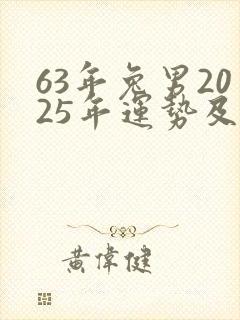 63年兔男20
25年運勢及
黃偉健